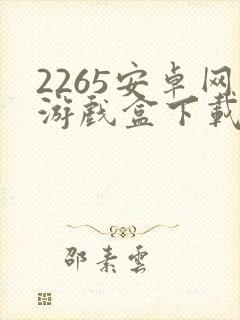 2265安卓网
游戏盒下载
邵素雲